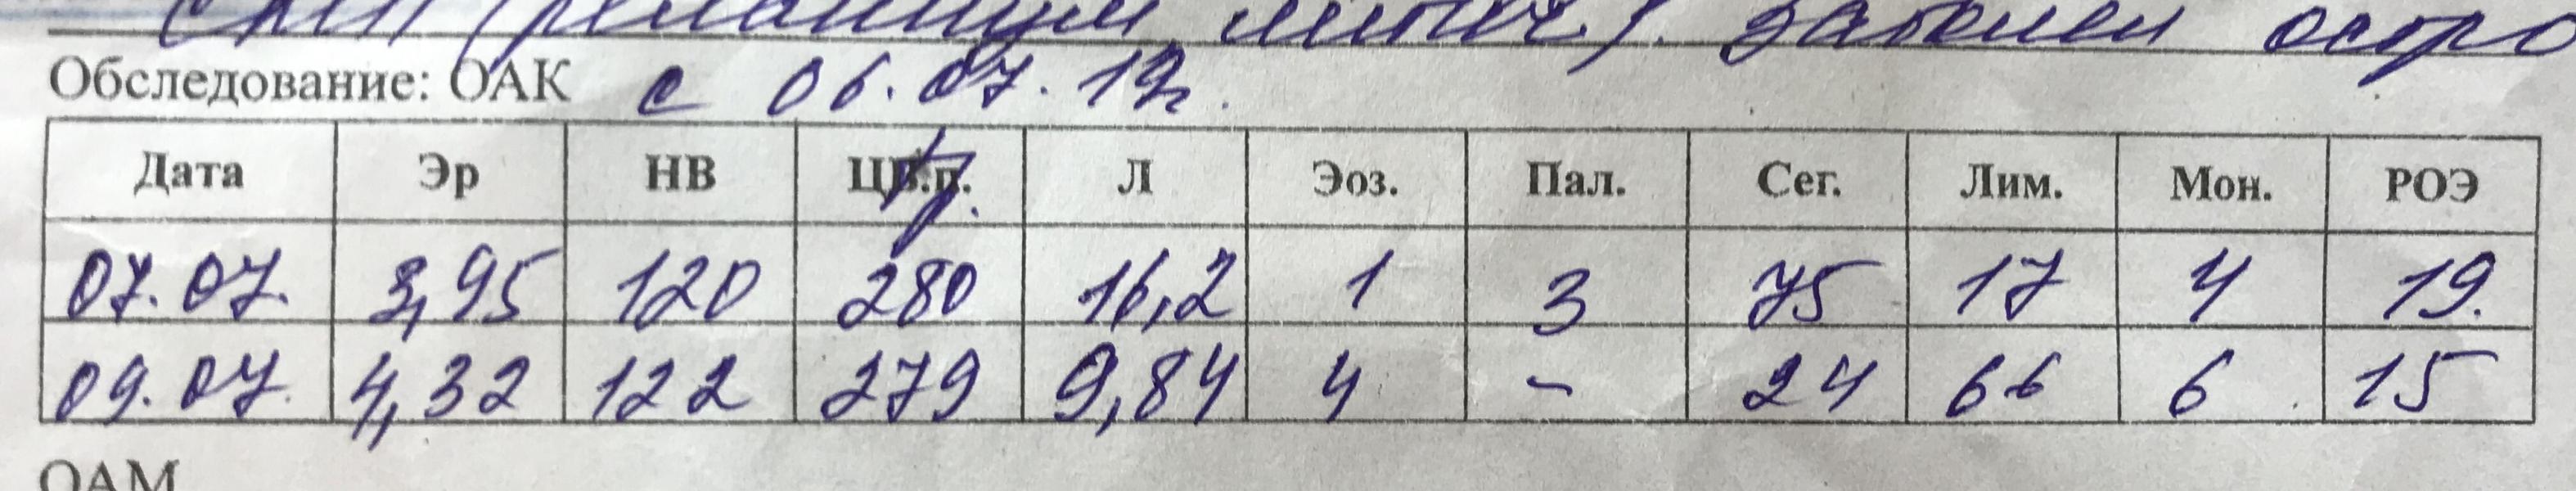 заболел остро
Обследование: ОАК с 06.07.19г.
Дата Эр НВ Цв.п. Тр. Л Эоз. Пал. Сег. Лим. Мон. РОЭ
07.07. 3,95 120 280 16,2 1 3 75 17 4 19.
09.07. 4,32 122 279 9,84 4 - 24 66 6 15
ОАМ